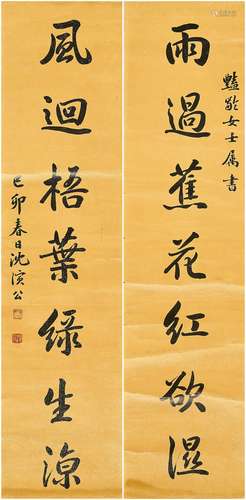 豔齡女士属書
雨過蕉花紅欲濕
風迴梧葉綠生涼
己卯春日沈演公